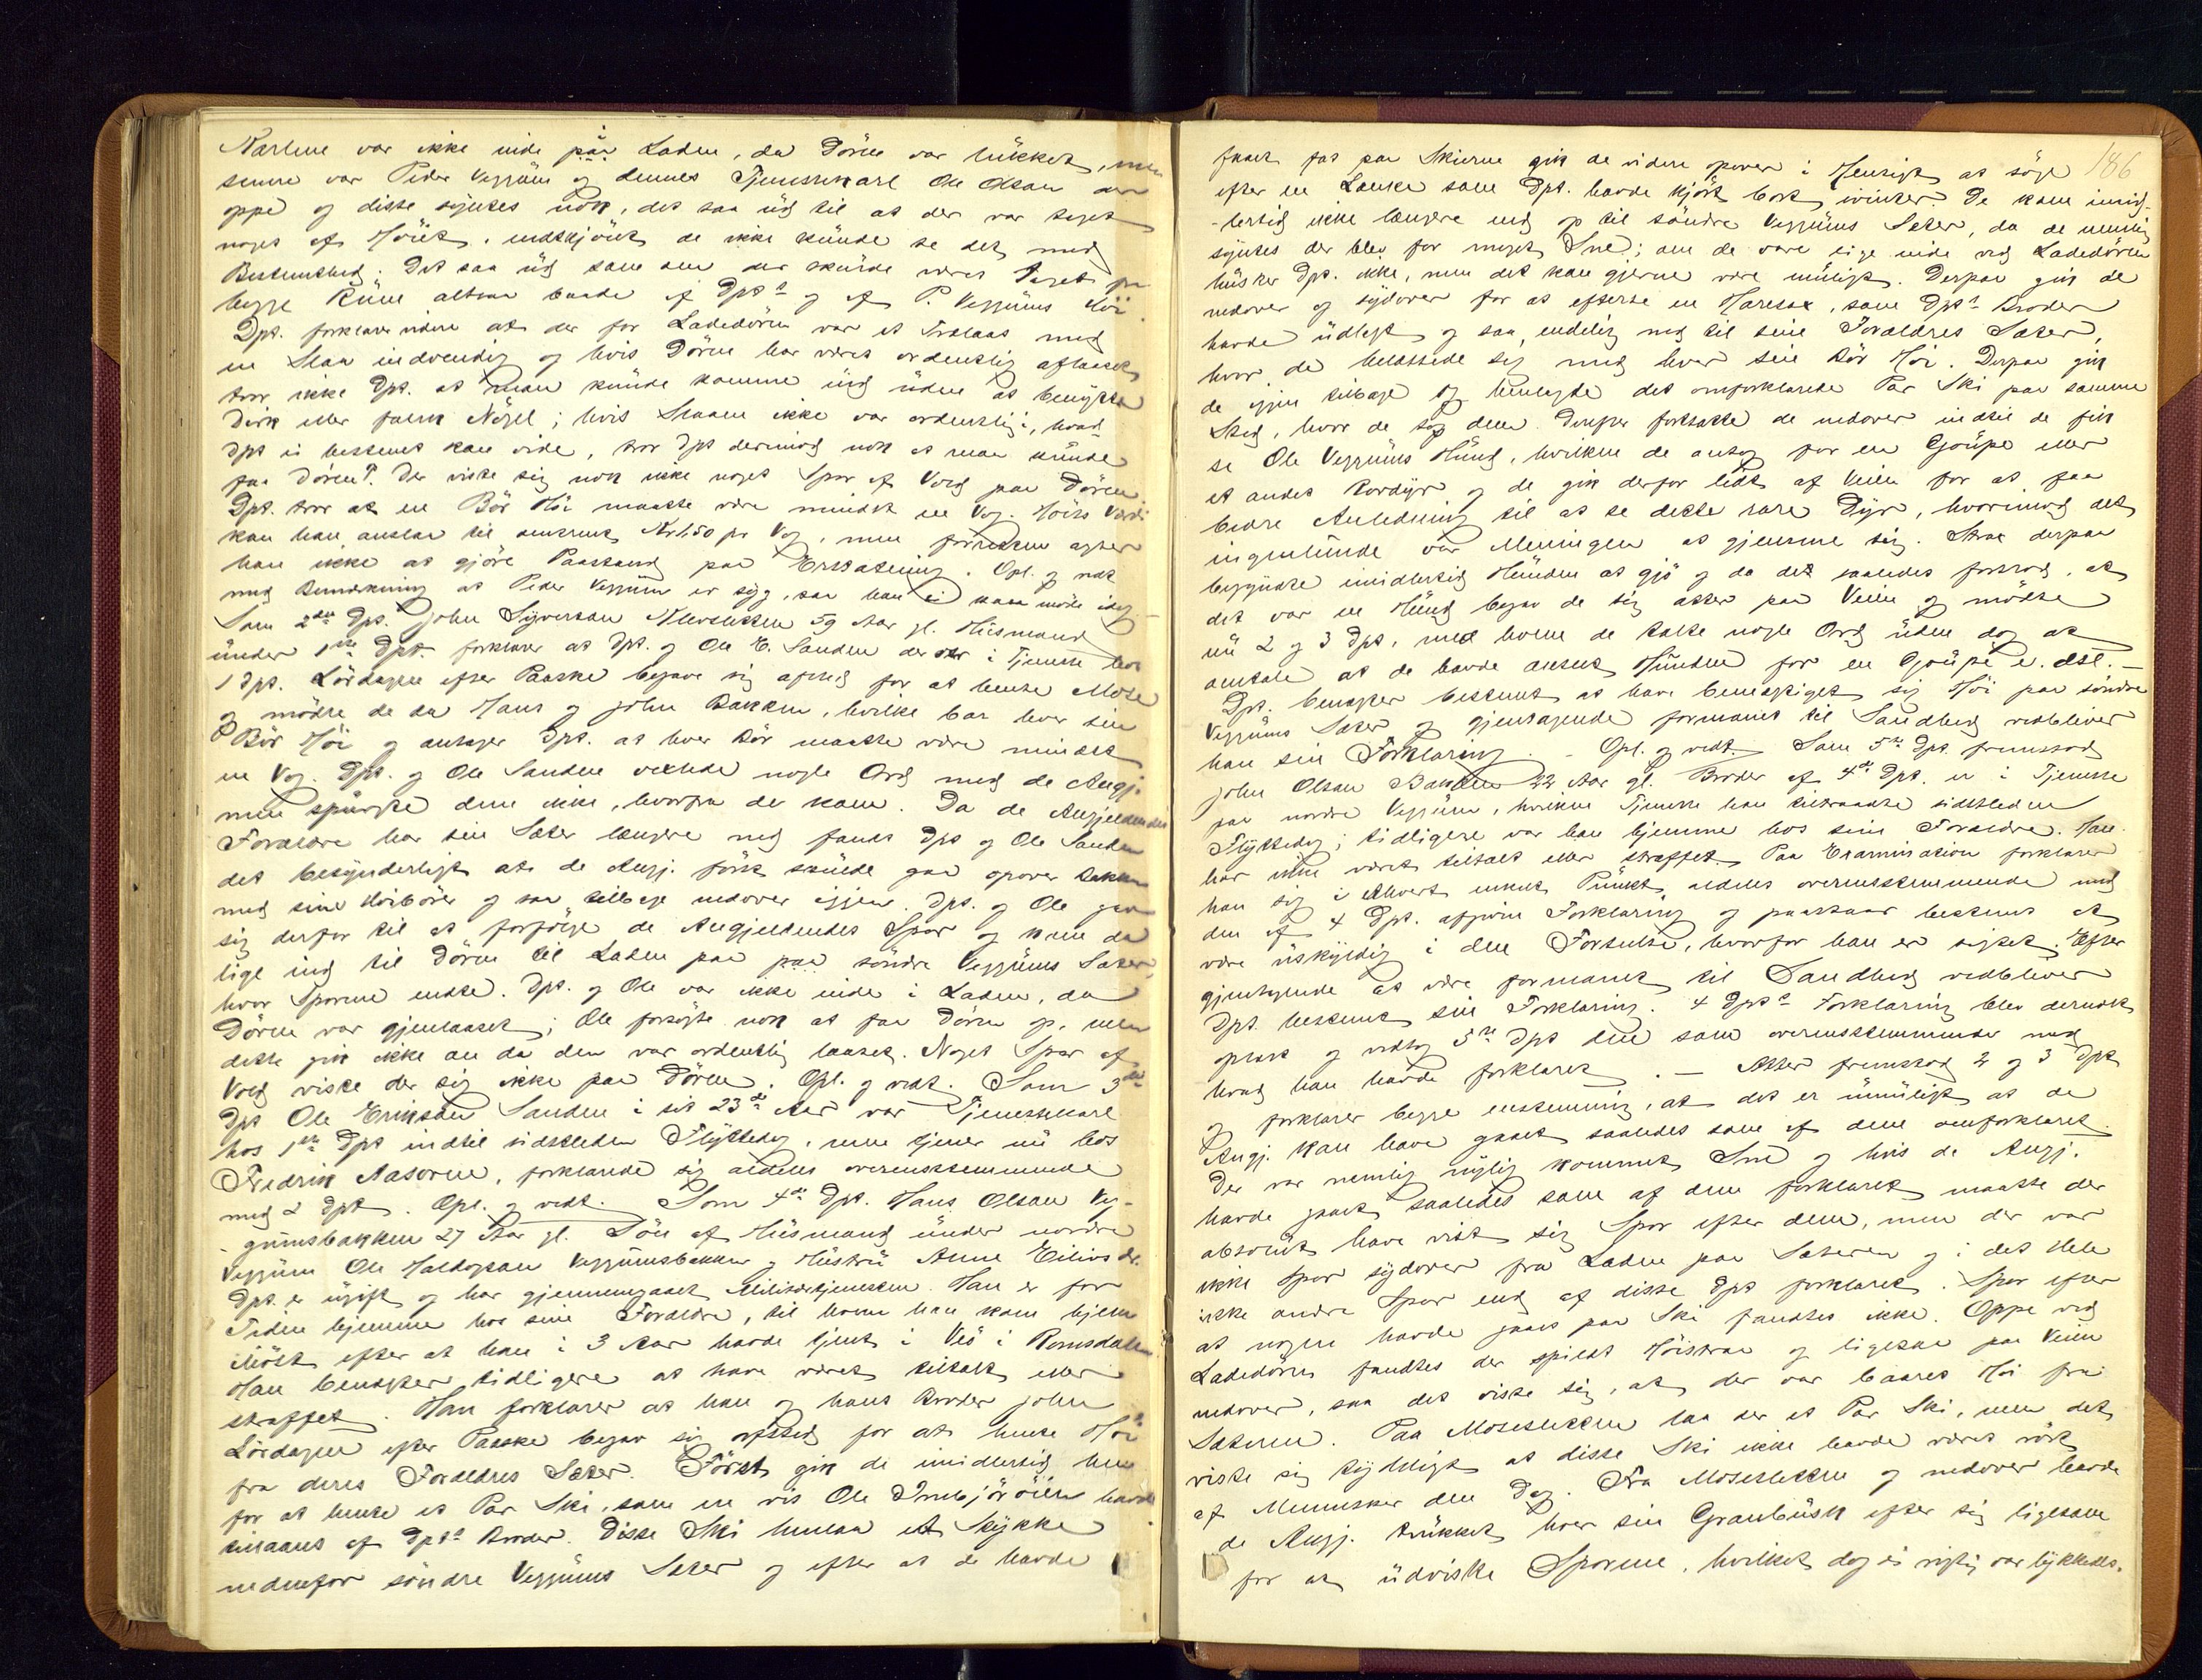 Karlene var ikke inde på Laden, da Døren var lukket, men
senere var Peder Veggum og dennes Tjenestekarl Ole Olsen der
oppe og disse syntes nok, det saa ud til at der var taget
noget af Høiet, endskjønt de ikke kunde se det med
Bestemthed. Det saa ud som om der skulde været taget fra
begge Rum altsaa baade af Dpts og af P. Veggums Høi.
Dpt. forklarer videre at der for Ladedøren var et Trælaas med
en Slaa indvendig og hvis Døren har været ordentlig aflaaset
tror ikke Dpt. at man kunde komme ind uden at benytte
Dirk eller falsk Nøgel; hvis Slaaen ikke var ordentlig i, hvad
Dpt ei bestemt kan vide, tror Dpt derimod nok at man kunde
faa Døren op. Der viste sig nok ikke noget Spor af Vold paa Døren.
Dpt. tror at en Bør Høi maatte være mindst en Vog. Høiets Værdi
kan han anslaa til omtrent Kr 1,50 pr Vog, men forresten agter
han ikke at gjøre Paastand paa Erstatning. Opl. og vedt.
med Bemærkning at Peder Veggum er syg, saa han ei kan møde idag.
Som 2det Dpt. John Syversen Klevsletten 59 Aar gl. Husmand
under 1ste Dpt. forklarer at Dpt. og Ole E. Sanden der var i Tjeneste hos
1 Dpt. Lørdagen efter Paaske begave sig afsted for at hente Mose
og mødte de da Hans og John Bakken, hvilke bar hver sin
Bør Høi og antager Dpt. at hver Bør maatte være mindst
en Vog. Dpt. og Ole Sanden vexlede nogle Ord med de Angj.
men spurgte dem ikke, hvorfra de kom. Da de Angjeldendes
Forældre har sin Sæter længere ned fandt Dpt og Ole Sanden
det besynderligt at de Angj. først skulde gaa opover Bakken
med sine Høibører og saa tilbage nedover igjen. Dpt. og Ole gav
sig derfor til at forfølge de Angjeldendes Spor og kom da
lige ind til Døren til Laden paa paa søndre Veggums Sæter,
hvor Sporene endte. Dpt. og Ole var ikke inde i Laden, da
Døren var gjenlaaset; Ole forsøgte nok at faa Døren op, men
dette gik ikke an da den var ordentlig laaset. Noget Spor af
Vold viste der sig ikke paa Døren. Opl. og vedt. Som 3die
Dpt Ole Eriksen Sanden i sit 23de Aar var Tjenestekarl
hos 1ste Dpt indtil sidstleden Flyttedag, men tjener nu hos
Fredrik Aasoren, forklarede sig aldeles overensstemmende
med 2 Dpt. Opl. og vedt. Som 4de Dpt. Hans Olsen Veg-
gumsbakken 27 Aar gl. Søn af Husmand under nordre
Veggum Ole Haldogsen Veggumsbakken og Hustru Anne Eilivsdr.
Dpt. er ugift og har gjennemgaaet Militærtjenesten. Han er for
Tiden hjemme hos sine Forældre, til hvem han kom hjem
ihøst efter at han i 3 Aar havde tjent i Veø i Romsdalen
Han benegter tidligere at have været tiltalt eller
straffet. Han forklarer at han og hans Broder John
Lørdagen efter Paaske begav sig afsted for at hente Høi
fra deres Forældres Sæter. Først gik de imidlertid hen
for at hente et Par Ski, som en vis Ole havde
tillaans af Dpts Broder. Disse Ski henlaa et Stykke
nedenfor søndre Veggums Sæter og efter at de havde
186
faaet fat paa Skierne gik de videre opover i Hensigt at søge
efter en Lænke som Dpt. havde kjørt bort ivinter. De kom imid-
-lertid ikke længere end op til søndre Veggums Sæter, da de nemlig
syntes der blev for meget Sne; om de vare lige inde ved Ladedøren
husker Dpt. ikke, men det kan gjerne være muligt. Derpaa gik de
nedover og sydover for at efterse en Haresax, som Dpts Broder
havde udlagt og saa, endelig ned til sine Forældres Sæter,
hvor de belæssede sig med hver sin Bør Høi. Derpaa gik
de igjen tilbage og henlagde det omforklarede Par Ski paa samme
Sted, hvor de tog dem. Derefter fortsatte de nedover indtil de fik
se Ole Veggums Hund, hvilken de antog for en Goupe eller
et andet Rovdyr og de gik derfor lidt af Veien for at faa
bedre Anledning til at se dette rare Dyr, hvorimod det
ingenlunde var Meningen at gjemme sig. Strax derpaa
begyndte imidlertid Hunden at gjø og da det saaledes forstod, at
det var en Hund begav de sig atter paa Veien og mødte
nu 2 og 3 Dpt, med hvem de talte nogle Ord uden dog at
omtale at de havde anseet Hunden for en Goupe e. dsl. —
Dpt. benegter bestemt at have bemægtiget sig Høi paa søndre
Veggums Sæter og gjentagende formanet til Sandhed vedbliver
han sin Forklaring. — Opl. og vedt. — Som 5te Dpt. fremstod
John Olsen Bakken 22 Aar gl. Broder af 4de Dpt. er i Tjeneste
paa nordre Veggum, hvilken Tjeneste han tiltraadte sidstleden
Flyttedag; tidligere var han hjemme hos sine Forældre. Han
har ikke været tiltalt eller straffet. Paa Examination forklarer
han sig i ethvert enkelt Punkt aldeles overensstemmende med
den af 4 Dpt. afgivne Forklaring og paastaar bestemt at
være uskyldig i den Forseelse, hvorfor han er sigtet. Efter
gjentagende at være formanet til Sandhed vedbliver
Dpt. bestemt sin Forklaring. 4 Dpts Forklaring blev dernæst
oplæst og vedtog 5te Dpt den som overensstemmende med
hvad han havde forklaret. — Atter fremstod 2 og 3 Dpt
og forklarer begge enstemmig, at det er umuligt at de
Angj. kan have gaaet saaledes som af dem omforklaret.
Der var nemlig nylig kommet Sne og hvis de Angj.
havde gaaet saaledes som af dem forklaret maatte der
absolut have vist sig Spor efter dem, men der var
ikke Spor sydover fra Laden paa Sæteren og i det Hele
ikke andre Spor end af disse Dpt forklaret. Spor efter
at nogen havde gaaet paa Ski fandtes ikke. Oppe ved
Ladedøren fandtes der spildt Høistraa og ligesaa paa Veien
nedover, saa det viste sig, at der var baaret Høi fra
Sæteren. Paa Mosesletten laa der et Par Ski, men det
viste sig tydeligt at disse Ski ikke havde været rørt
af Mennesker den Dag. Fra Mosesletten og nedover havde
de Angj. trukket hver sin Granbusk efter sig ligesom
for at udviske Sporene, hvilket dog ei rigtig var lykkedes.